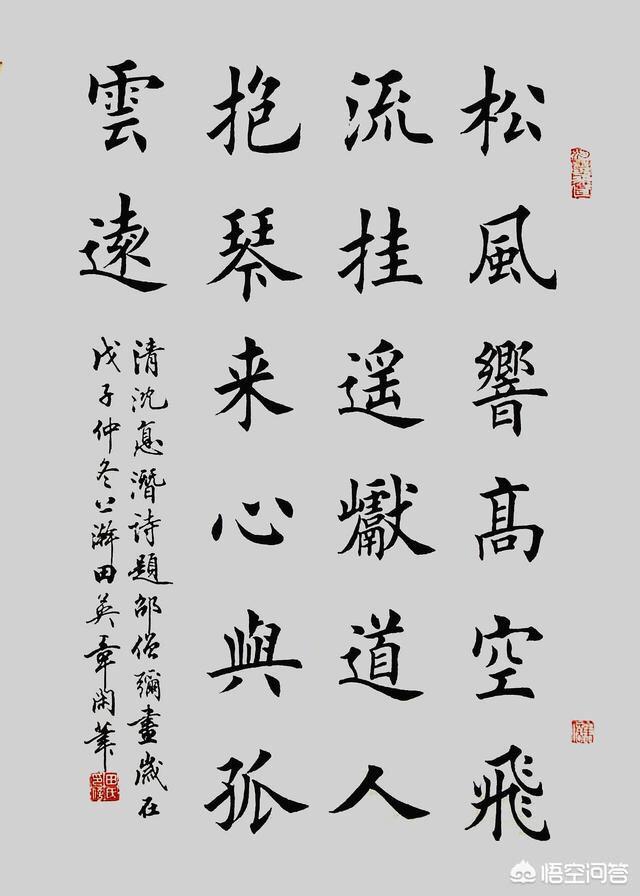 松風響髙空飛
流挂遥巘道人
抱琴来心與孤
雲遠
清沈惪潛詩題邵僧彌畫歲在
戊子仲冬上澣田英章閑筆
悟空问答